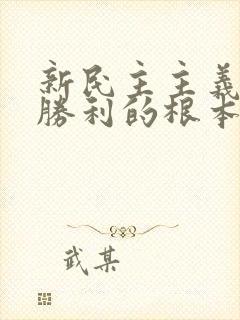 新民主主義
勝利的根本
武某